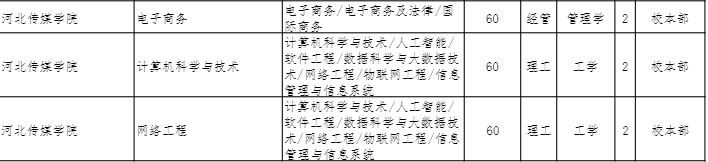 河北传媒学院 电子商务 电子商务/电子商务及法律/国 60 经管 管理学 2 校本部
际商务
河北传媒学院 计算机科学与技术 计算机科学与技术/人工智能/ 60 理工 工学 2 校本部
软件工程/数据科学与大数据技
术/网络工程/物联网工程/信息
管理与信息系统
河北传媒学院 网络工程 计算机科学与技术/人工智能/ 60 理工 工学 2 校本部
软件工程/数据科学与大数据技
术/网络工程/物联网工程/信息
管理与信息系统